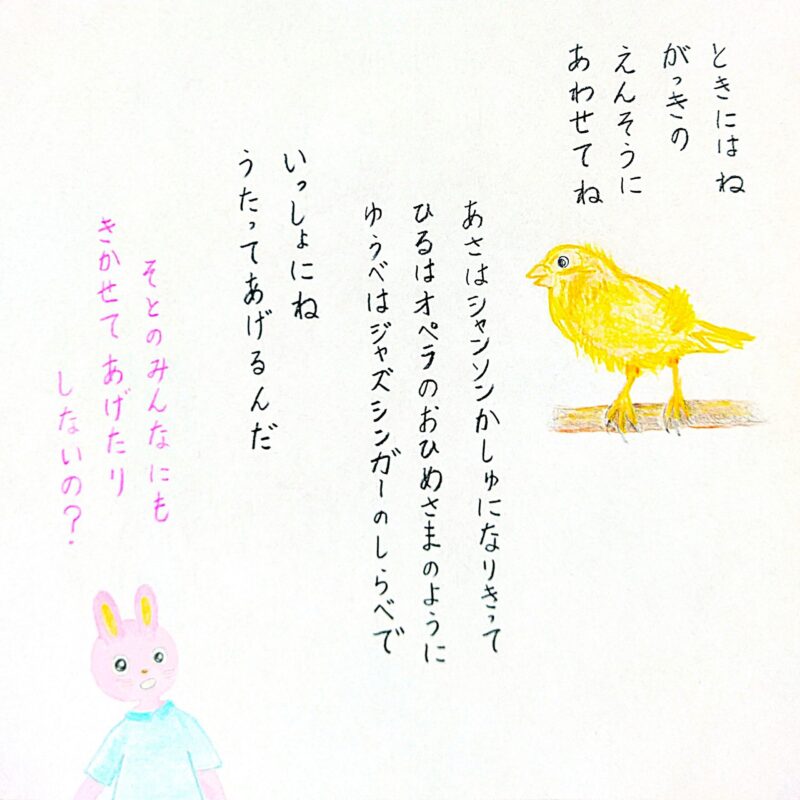 ときにはね
がっきの
えんそうに
あわせてね
あさはシャンソンかしゅになりきって
ひるはオペラのおひめさまのように
ゆうべはジャズシンガーのしらべで
いっしょにね
うたってあげるんだ
そとのみんなにも
きかせてあげたり
しないの？